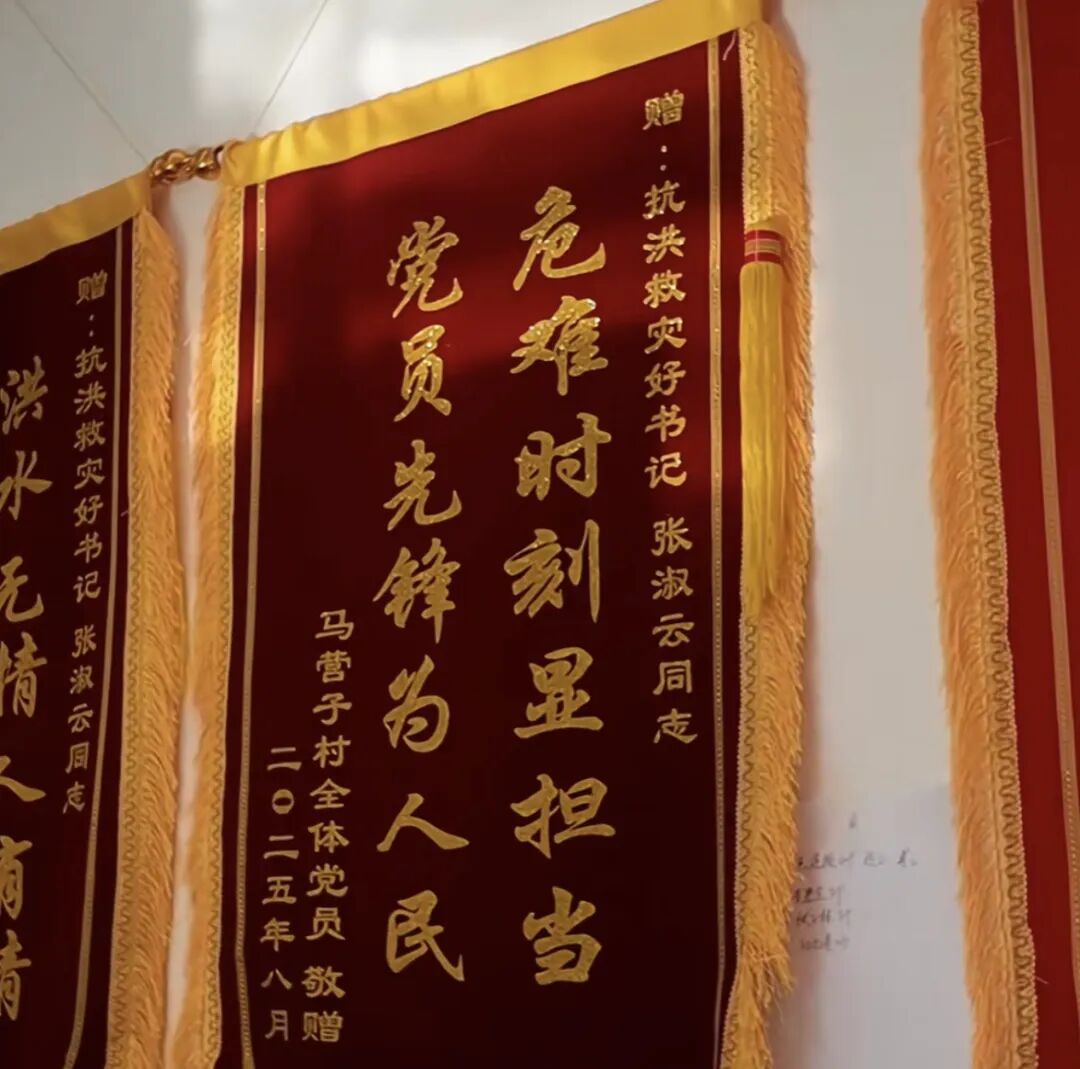 赠：抗洪救灾好书记 张淑云同志
危难时刻显担当
党员先锋为人民
马营子村全体党员 敬赠
二〇二五年八月
赠：抗洪救灾好书记 张淑云同志
洪水无情人有情